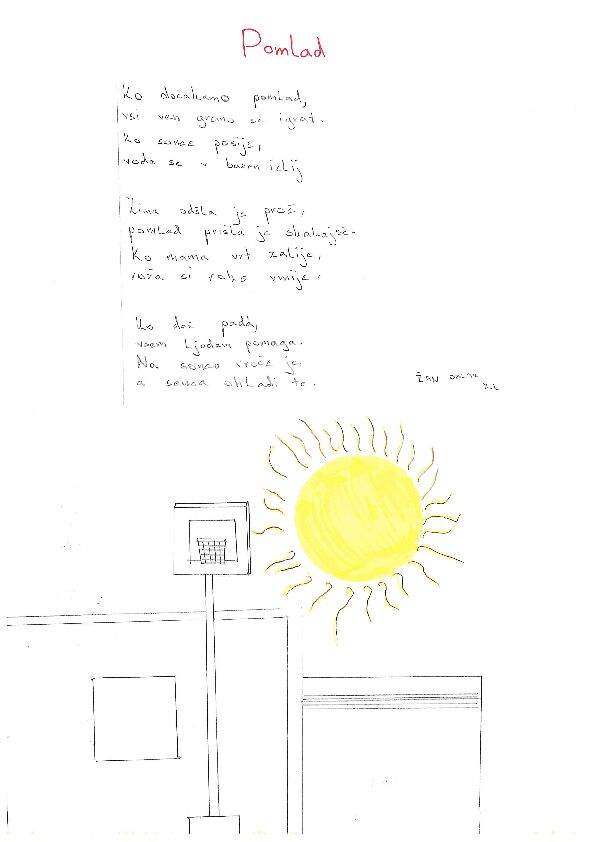 Pomlad
Ko dočakamo pomlad,
vsi ven gremo se igrat.
Ko sonce posije,
voda se v bazen izlij
Zima odšla je proč,
pomlad prišla je skakajoč.
Ko mama vrt zalije,
roža si roke umije.
Ko dež pada,
vsem ljudem pomaga.
Na soncu vroče je
a senca ohladi te.
ŽAN